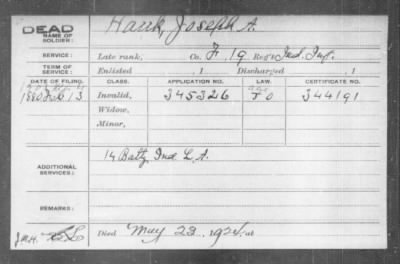 DEAD
NAME OF SOLDIER: Hauk, Joseph A.
SERVICE: Late rank, Co. F, 19 Reg't Ind. Inf.
TERM OF SERVICE: Enlisted 1 Discharged 1
DATE OF FILING. CLASS. APPLICATION NO. LAW. CERTIFICATE NO.
1880 Feb 13 Invalid, 345326 344191
Widow,
Minor,
ADDITIONAL SERVICES: 14 Batty Ind L. A.
REMARKS:
Died May 23, 1924, at